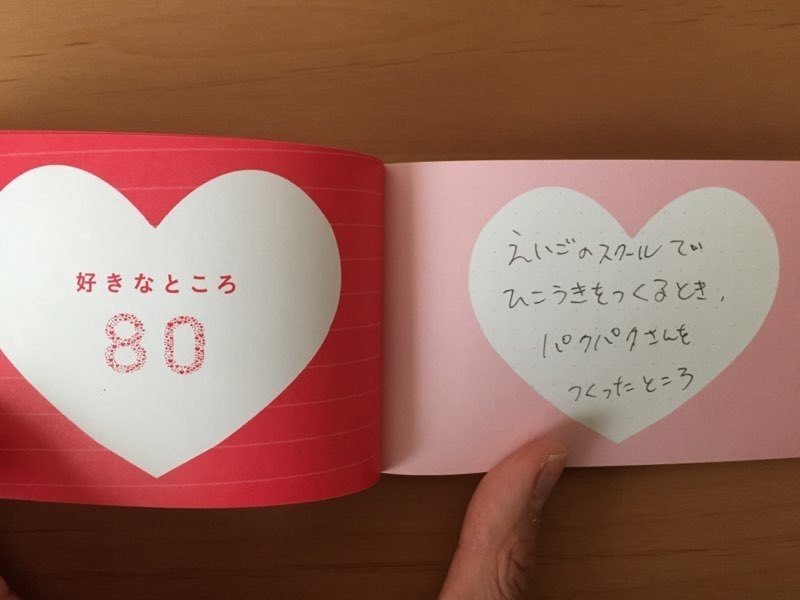 好きなところ
80
えいごのスクールで
ひこうきをつくるとき、
パクパクさんを
つくったところ